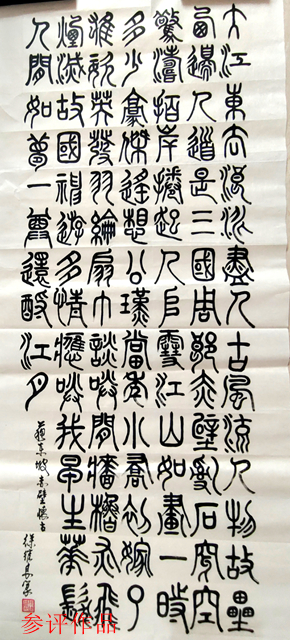 大江東去浪淘盡千古風流人物故壘
西邊人道是三國周郎赤壁亂石穿空
驚濤拍岸捲起千堆雪江山如畫一時
多少豪傑遙想公瑾當年小喬初嫁了
雄姿英發羽綸扇巾談笑間檣櫓灰飛
煙滅故國神遊多情應笑我早生華髮
人間如夢一尊還酹江月
蘇東坡赤壁懷古
参评作品